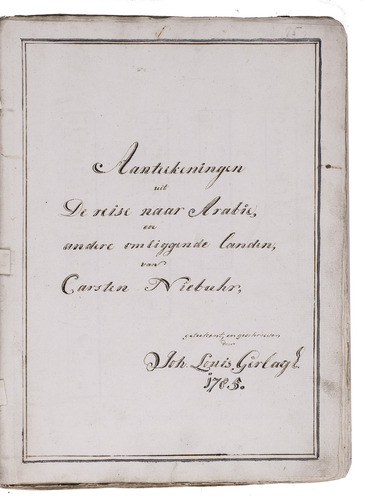 Aanteekeningen
uit
De reise naar Arabie,
en
andere omliggende landen,
van
Carsten Niebuhr,
geteekent, en geschreven
door
Joh. Louis Gerlagh.
1785.